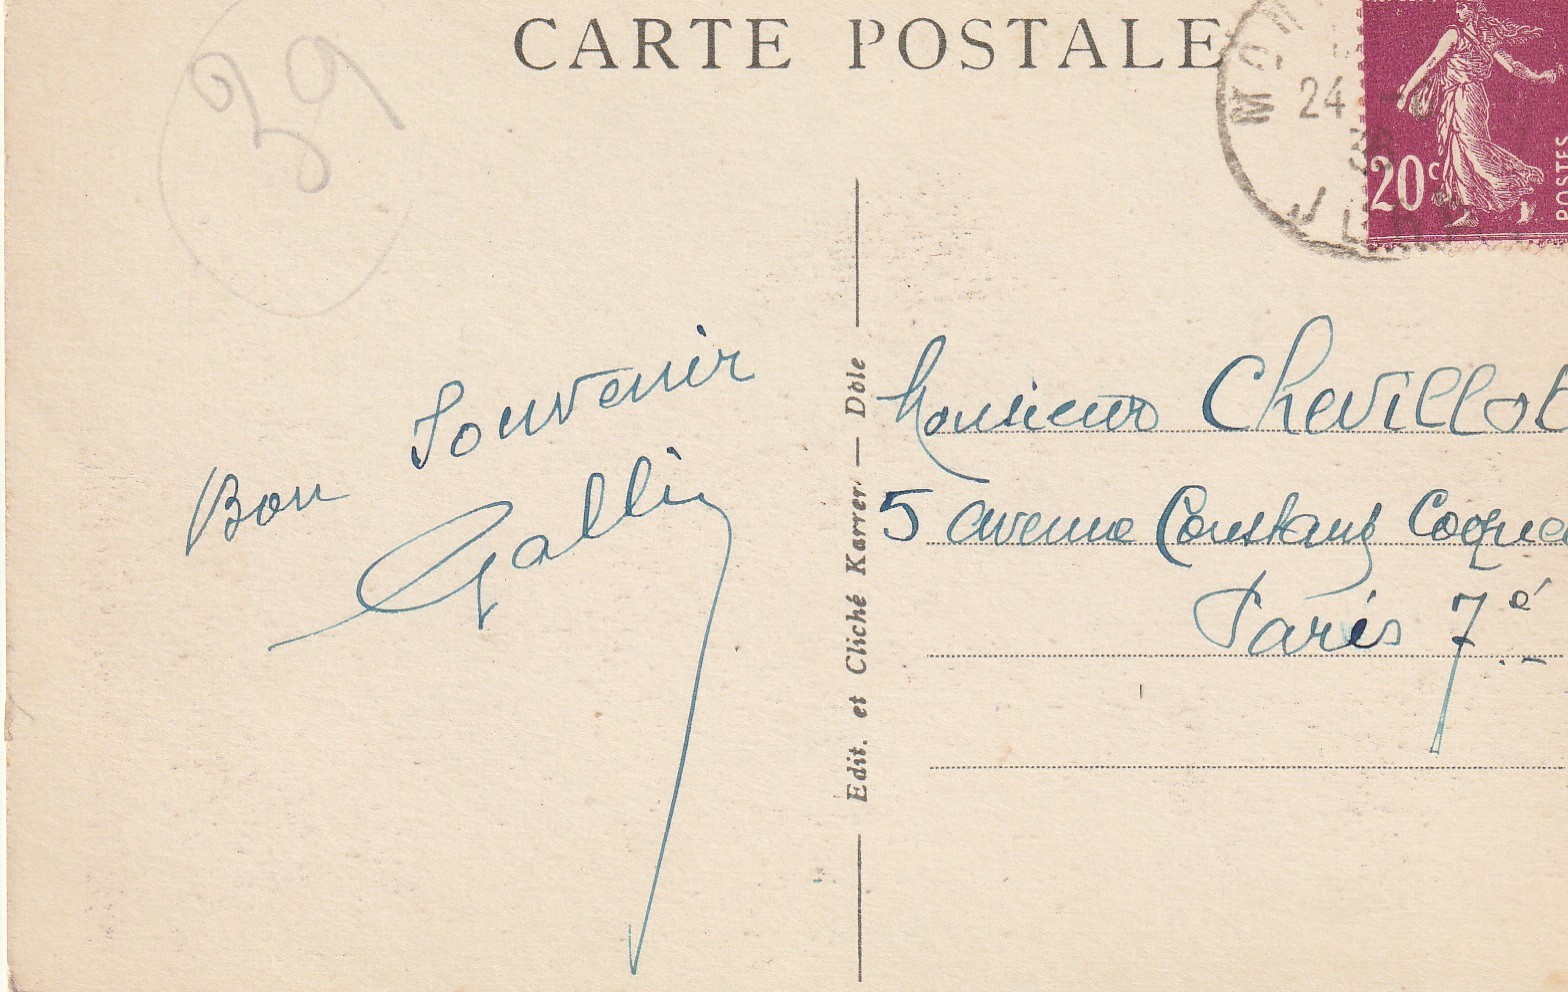 CARTE POSTALE
39
24
20c
POSTES
JURA
Bon Souvenir
Gallin
Edit. et Cliché Karrer — Dôle
Monsieur Chevillot
5 avenue Constant Coque
Paris 7e